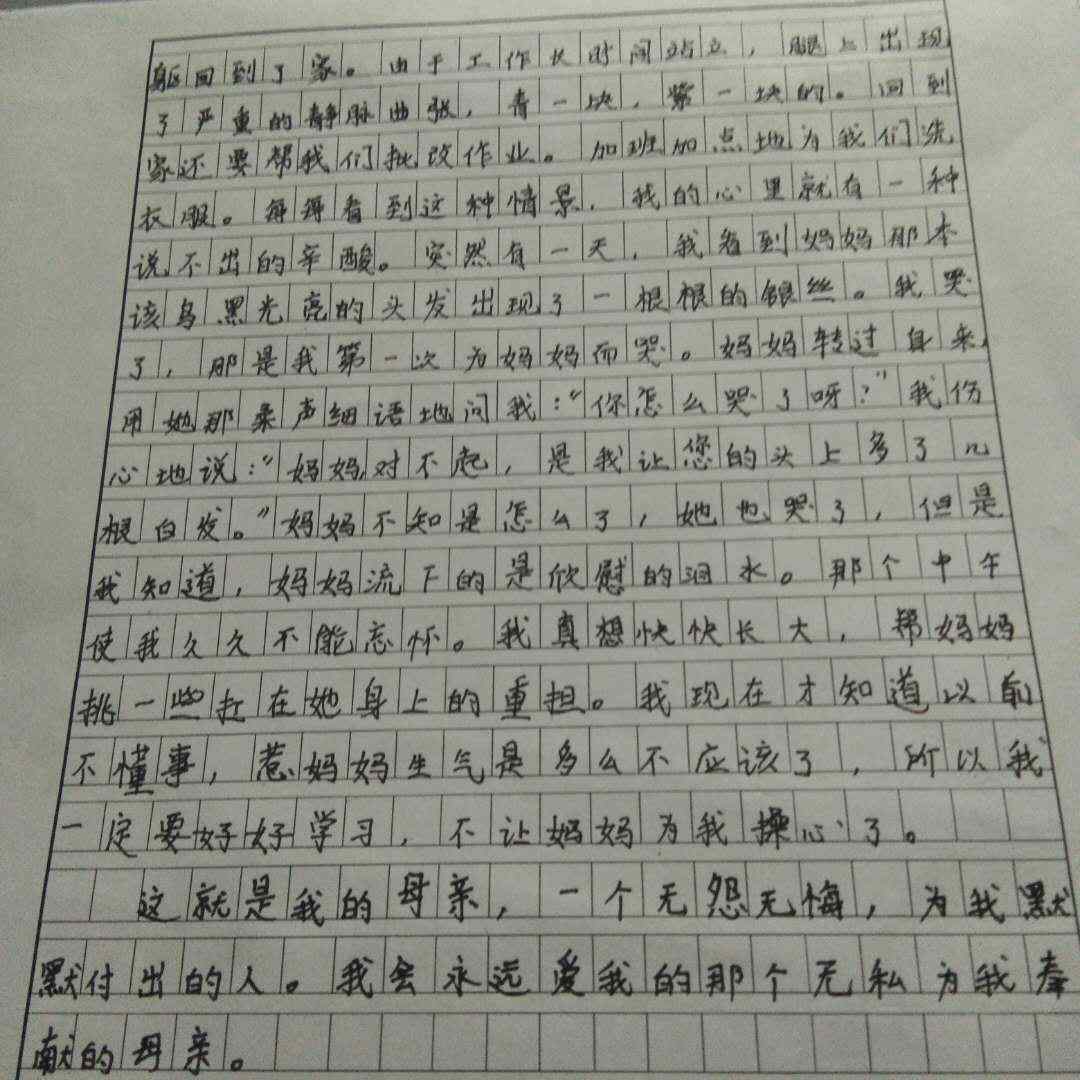 躯回到了家。由于工作长时间站立，腿上出现
了严重的静脉曲张，青一块，紫一块的。回到
家还要帮我们批改作业。加班加点地为我们洗
衣服。每每看到这种情景，我的心里就有一种
说不出的辛酸。突然有一天，我看到妈妈那本
该乌黑光亮的头发出现了一根根的银丝。我哭
了，那是我第一次为妈妈而哭。妈妈转过身来，
用她那柔声细语地问我：“你怎么哭了呀？”我伤
心地说：“妈妈对不起，是我让您的头上多了几
根白发。”妈妈不知是怎么了，她也哭了，但是
我知道，妈妈流下的是欣慰的泪水。那个中午
使我久久不能忘怀。我真想快快长大，帮妈妈
挑一些扛在她身上的重担。我现在才知道以前
不懂事，惹妈妈生气是多么不应该了，所以我
一定要好好学习，不让妈妈为我操心了。
这就是我的母亲，一个无怨无悔，为我默
默付出的人。我会永远爱我的那个无私为我奉
献的母亲。